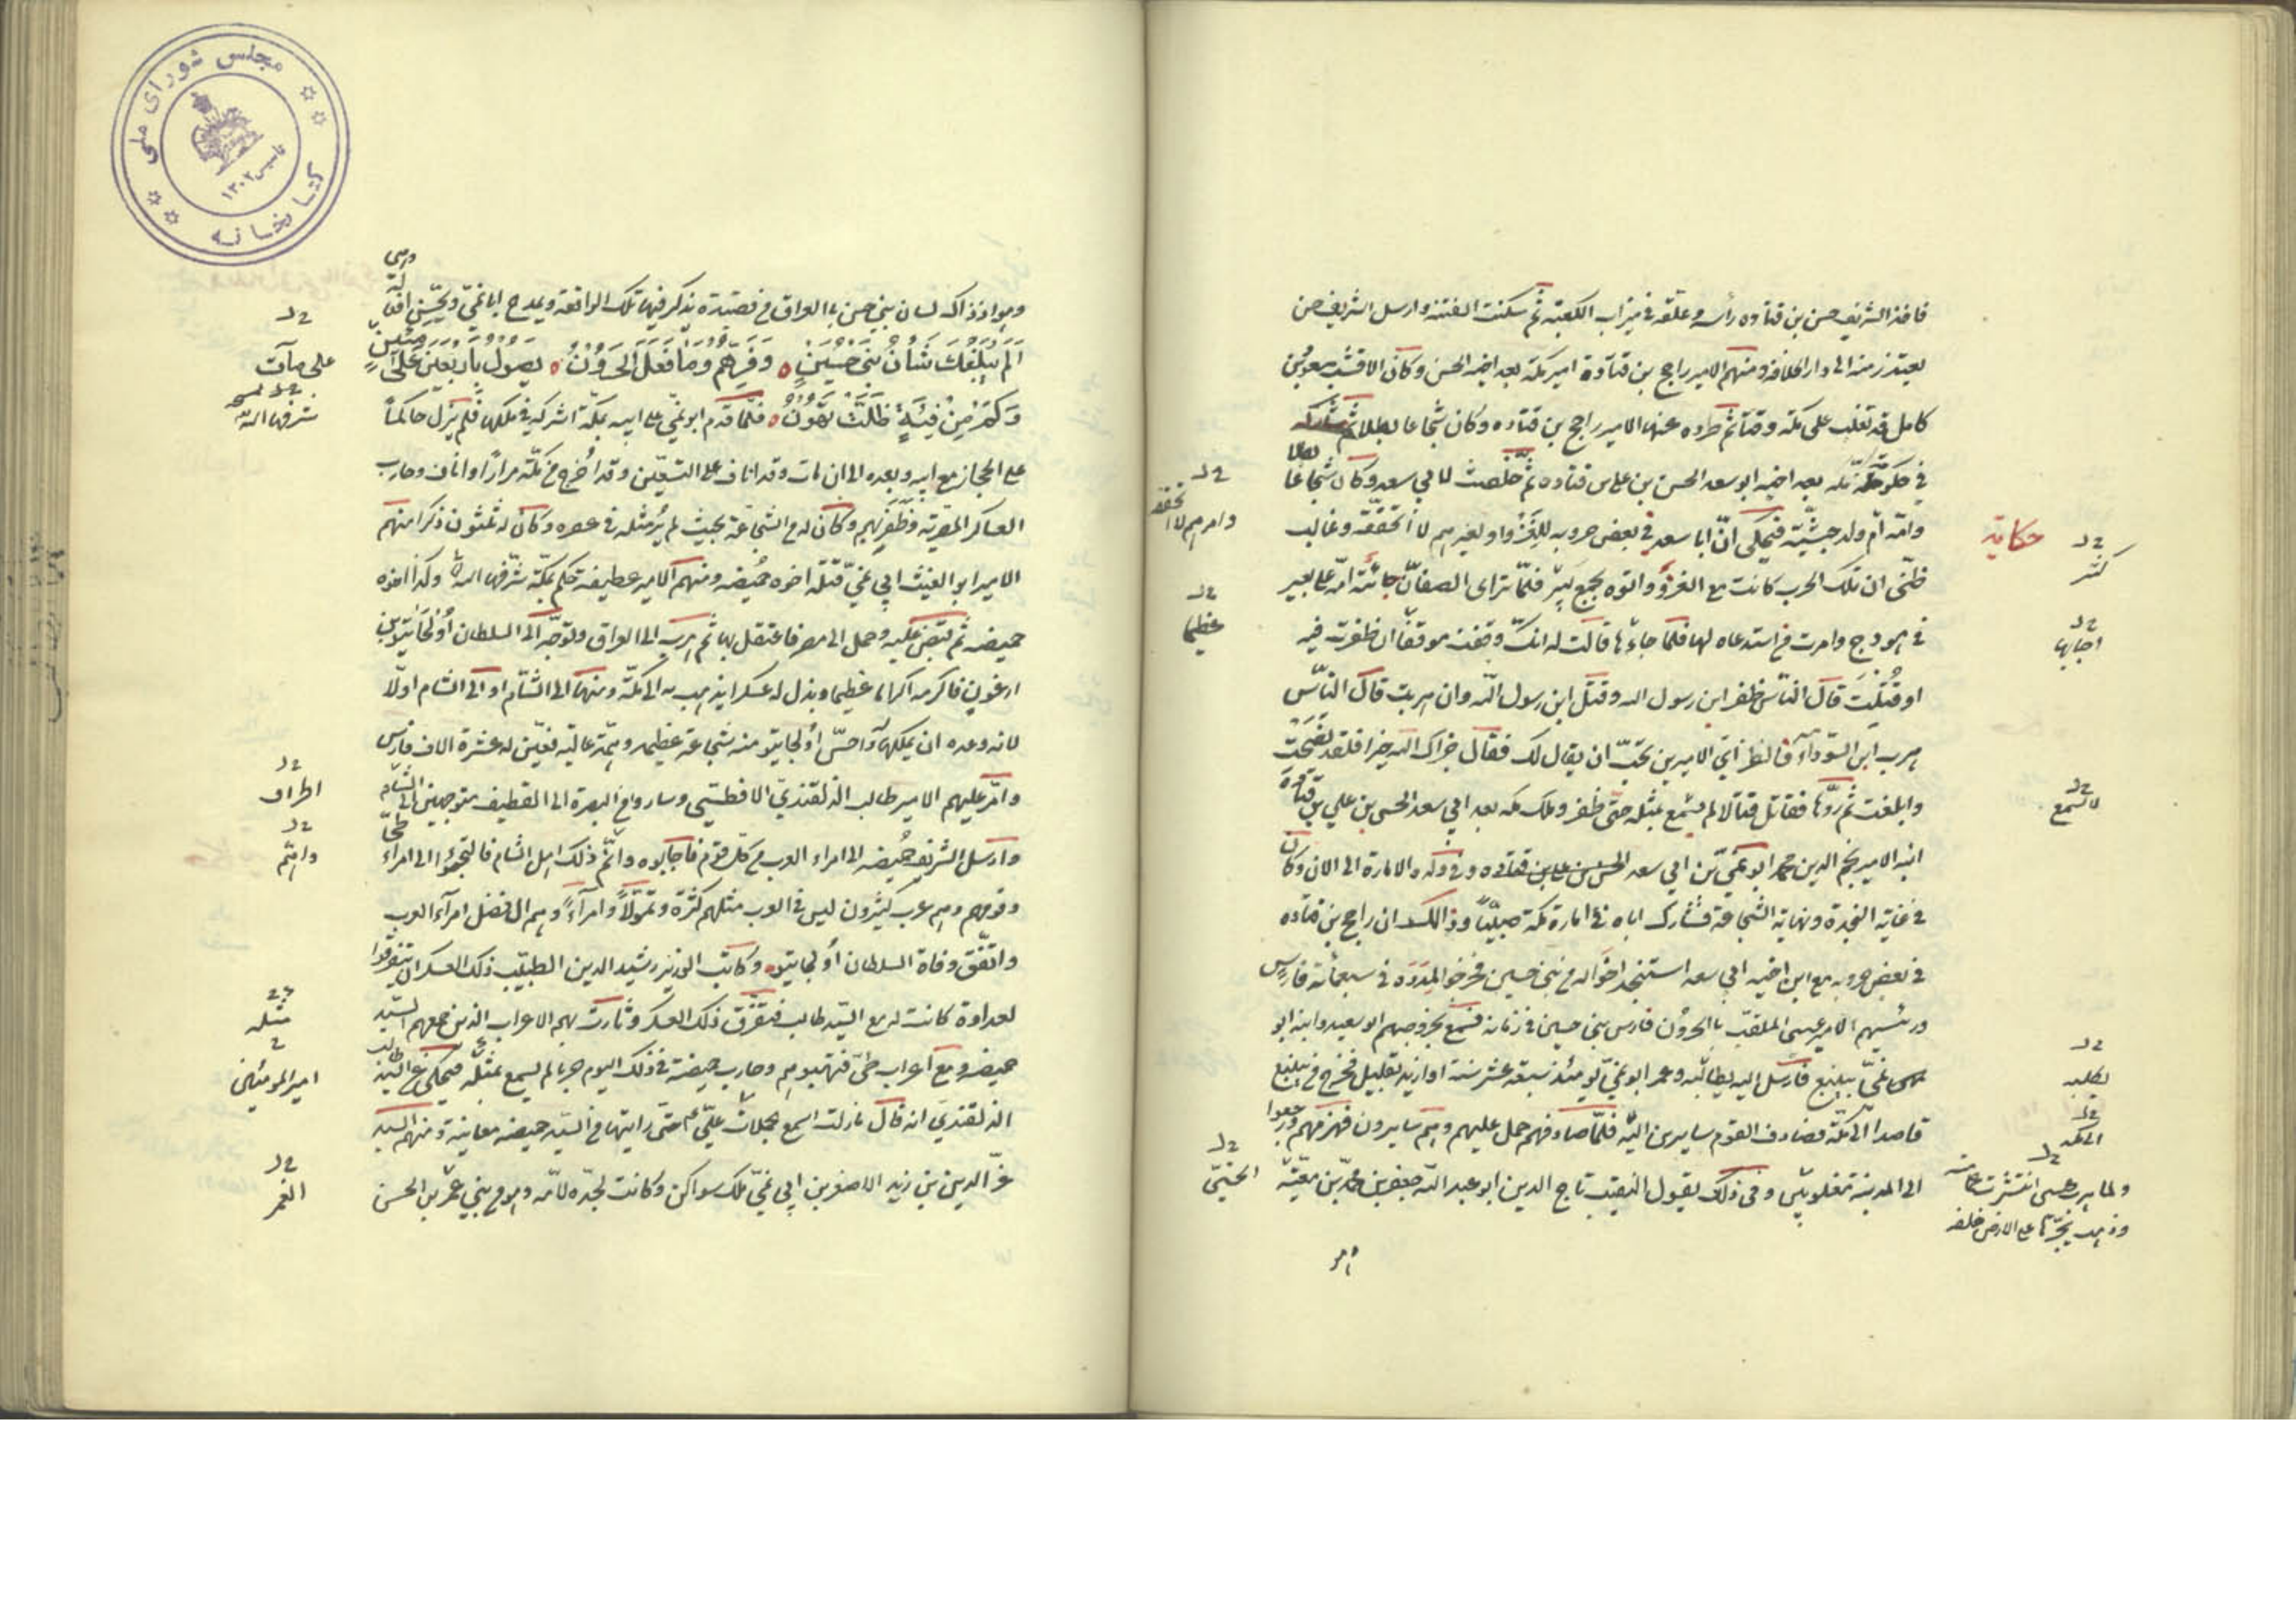 فاخذ الشريف حسن بن قتاده رأسه وعلّقه في ميزاب الكعبة ثم سكنت الفتنة وارسل الشريف حسن
يعتذر منه الى دار الخلافة ومنهم الامير راجح بن قتادة امير مكة بعد اخيه الحسن وكان الاقشب
كامل قد تغلب على مكة وقتا ثم طرده عنها الامير راجح بن قتاده وكان شجاعا بطلا ثم شاركه
في مكة بعد اخيه ابو سعد الحسن بن علي بن قتاده ثم خلصت لابي سعد وكان شجاعا
وامّه ام ولد حبشيّة فيحكى انّ ابا سعد في بعض حروبه للغزّ او لغيرهم لا أتحقّقه وغالب
حكاية
ظنّى ان تلك الحرب كانت مع الغز والتوه بجمع كثير فلمّا تراى الصفان جائته امّه على بعير
في هودج وامرت من استدعاه لها فلما جاءها قالت له انك وقفت موقفا ان ظفرت فيه
او قُتلت قال الناس ظفر ابن رسول الله وقتل ابن رسول الله وان هربت قال الناس
هرب ابن السوداء فانظر اي الامرين تحبّ ان يقال لك فقال جزاك الله خيرا فلقد نصحت
وابلغت ثم ردّها فقاتل قتالا لم يسمع بمثله حتى ظفر وملك مكه بعد ابي سعد الحسن بن علي بن قتادة
ابنه الامير نجم الدين محمد ابو نمي بن ابي سعد الحسن بن علي بن قتاده وفي ولده الامارة الى الان وكان
في غاية النجدة ونهاية الشجاعة فشارك اباه في امارة مكة صبيّا وذالك ان راجح بن قتاده
في بعض حروبه مع ابن اخيه ابي سعد استنجد اخواله من بني حسين فخرجوا لمدده في سبعمائة فارس
ورئيسهم الامير عيسى الملقب بالحرون فارس بني حسين في زمانه فسمع بخروجهم ابو سعيد وابنه ابو
نميّ بينبع فارسل اليه يطالبه وعمر ابو نميّ يومئذ سبعة عشر سنة او ازيد بقليل فخرج من ينبع
قاصدا الى مكة فصادف القوم سايرين اليه فلمّا صادفهم حمل عليهم وهم سايرون فهزمهم ورجعوا
الى المدينة مغلوبين وفى ذلك يقول النقيب تاج الدين ابو عبد الله جعفر بن محمد بن معيّة
كثير
اجابها
لا يسمع
يطلبه
الى مكة
عظيما
الحسنيّ
وهو اذ ذاك لسان بني حسن بالعراق من قصيدة يذكر فيها تلك الواقعة ويمدح ابا نميّ
اَلَمْ يَبْلُغْكَ شَأنُ بَني حُسَيْنٍ ٥ وَفَرِّهِمُ وَمَا فَعَلَ الحَرُونُ ٥ يَصُولُ بِأَرْبَعينَ عَلَى مِئِينٍ
وَكَمْ مِنْ فِئَةٍ ظَلَّتْ تَهُونُ ٥ فلمّا قدم ابو نمي على ابيه بمكة اشركه في ملكها فلم يزل حاكماً
على الحجاز مع ابيه وبعده الى ان مات وقد اناف على التسعين وقد أخرج من مكّة مرارًا وحارب
العساكر المصرية وظفر بهم وكان له من الشجاعة بحيث لم يُر مثله في عصره وكان له ثلثون ذكرا منهم
الامير ابو الغيث ابن ابي نميّ قتله اخوه حميضه ومنهم الامير عطيفة حكم بمكة شرّفها الله وكذا اخوه
حميضه ثم قبض عليه وحمل الى مصر فاعتقل بها ثم هرب الى العراق وتوجّه الى السلطان أولجايتو بن
ارغون فاكرمه اكراما عظيما وبذل له عسكرا يذهب به الى مكة ومنها الى الشام او الى الشام اولا
لانه وعده ان يملكها واحسّ أولجايتو منه شجاعة عظيمه وهمّة عالية فعيّن له عشرة الاف فارس
وامّر عليهم الامير طالب الدلقندي الافطسي وساروا من البصرة الى القطيف متوجهين الى الشام
وارسل الشريف حُميضه الى امراء العرب من كل قوم فاجابوه واتهم ذلك اهل الشام فالتجؤا الى امراء طيّ
وقومهم وهم عرب كثيرون ليس في العرب مثلهم كثرة وتموّلاً وامراء وهم ال فضل امراء العرب
واتّفق وفاة السلطان أولجايتو وكاتب الوزير رشيد الدين الطبيب ذلك العسكر ان يتفرقوا
لعداوة كانت له مع السيّد طالب فتفرّق ذلك العسكر وثارت بهم الاعراب الذين جمعهم السيد
حميضه ومع اعراب طيّ فنهبوهم وحارب حميضة في ذلك اليوم حربا لم يسمع بمثله فيحكى عن السيّد طالب
الدلقنديّ انه قال ما زلت اسمع بحملات عليّ حتّى رايتها من السيد حميضه معاينة ومنهم السيد
عزّ الدين بن زيد الاصغر بن ابي نميّ ملك سواكن وكانت لجدّه لامّه وهو من بني عمر بن الحسن
على مآت
شرفها الله
اطراف
مثله
امير المومنين
الغمر
مجلس شورای ملی
کتابخانه
تاسیس ۱۳۰۲